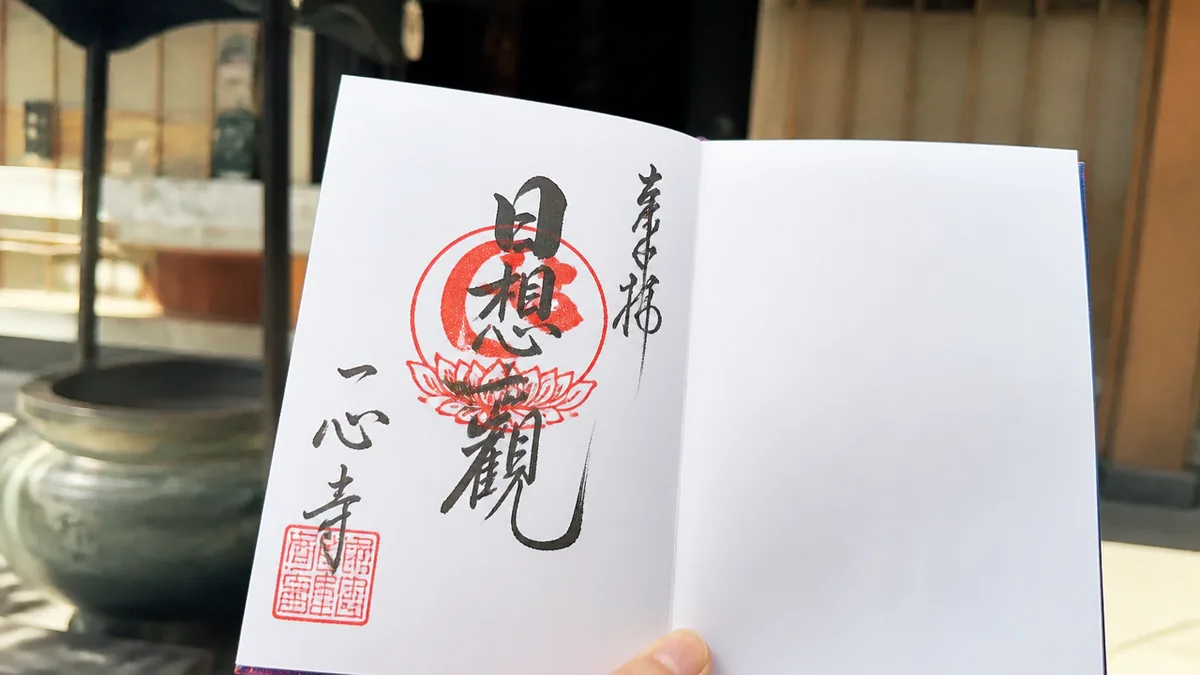 奉拝
日想観
一心寺